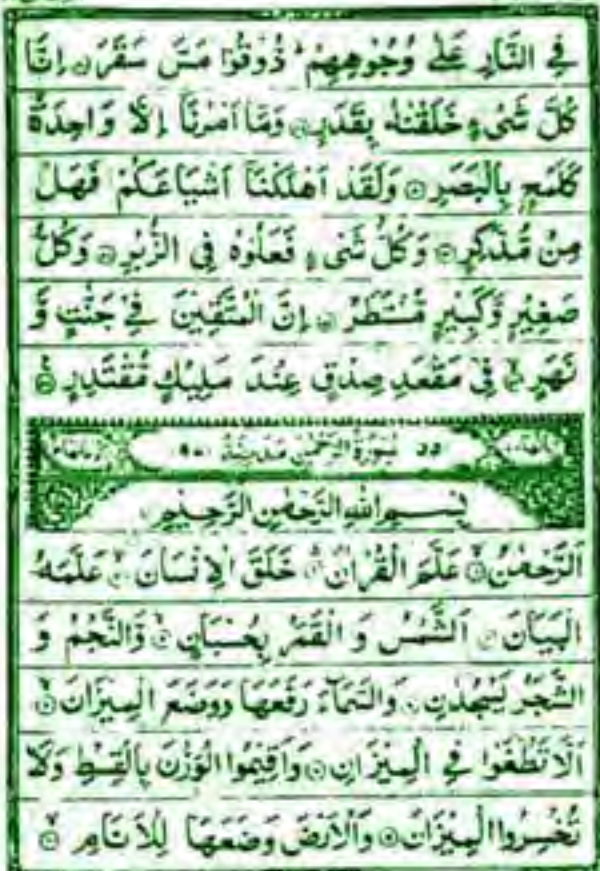 فِي النَّارِ عَلٰى وُجُوْهِهِمْ ؕ ذُوْقُوْا مَسَّ سَقَرَ ۝ اِنَّا
كُلَّ شَیْءٍ خَلَقْنٰهُ بِقَدَرٍ ۝ وَمَاۤ اَمْرُنَاۤ اِلَّا وَاحِدَةٌ
كَلَمْحٍۭ بِالْبَصَرِ ۝ وَلَقَدْ اَهْلَكْنَاۤ اَشْيَاعَكُمْ فَهَلْ
مِنْ مُّدَّكِرٍ ۝ وَكُلُّ شَیْءٍ فَعَلُوْهُ فِي الزُّبُرِ ۝ وَكُلُّ
صَغِيْرٍ وَّكَبِيْرٍ مُّسْتَطَرٌ ۝ اِنَّ الْمُتَّقِيْنَ فِيْ جَنّٰتٍ وَّ
نَهَرٍ ۝ فِيْ مَقْعَدِ صِدْقٍ عِنْدَ مَلِيْكٍ مُّقْتَدِرٍ ۝
٥٥ سُوْرَةُ الرَّحْمٰنِ مَدَنِيَّةٌ
بِسْمِ اللّٰهِ الرَّحْمٰنِ الرَّحِيْمِ
اَلرَّحْمٰنُ ۝ عَلَّمَ الْقُرْاٰنَ ۝ خَلَقَ الْاِنْسَانَ ۝ عَلَّمَهُ
الْبَيَانَ ۝ اَلشَّمْسُ وَ الْقَمَرُ بِحُسْبَانٍ ۝ وَّالنَّجْمُ وَ
الشَّجَرُ يَسْجُدٰنِ ۝ وَالسَّمَآءَ رَفَعَهَا وَوَضَعَ الْمِيْزَانَ ۝
اَلَّا تَطْغَوْا فِي الْمِيْزَانِ ۝ وَاَقِيْمُوا الْوَزْنَ بِالْقِسْطِ وَلَا
تُخْسِرُوا الْمِيْزَانَ ۝ وَالْاَرْضَ وَضَعَهَا لِلْاَنَامِ ۝